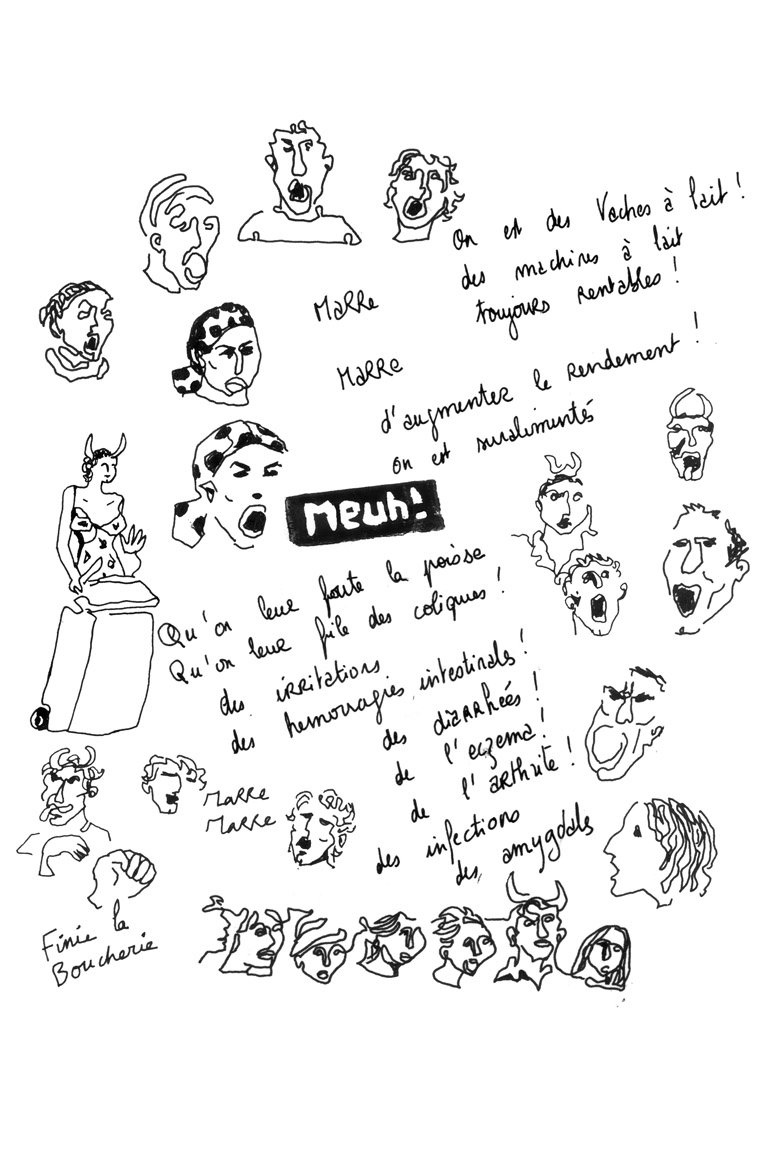 On est des Vaches à lait !
des machines à lait
toujours rentables !
Marre
Marre
d'augmenter le rendement !
on est suralimenté
Meuh!
Qu'on leur foute la poisse
Qu'on leur file des coliques !
des irritations
des hemorragies intestinales !
des diarrhées !
de l'eczema !
de l'arthrite !
des infections
des amygdales
Marre
Marre
Finie la
Boucherie